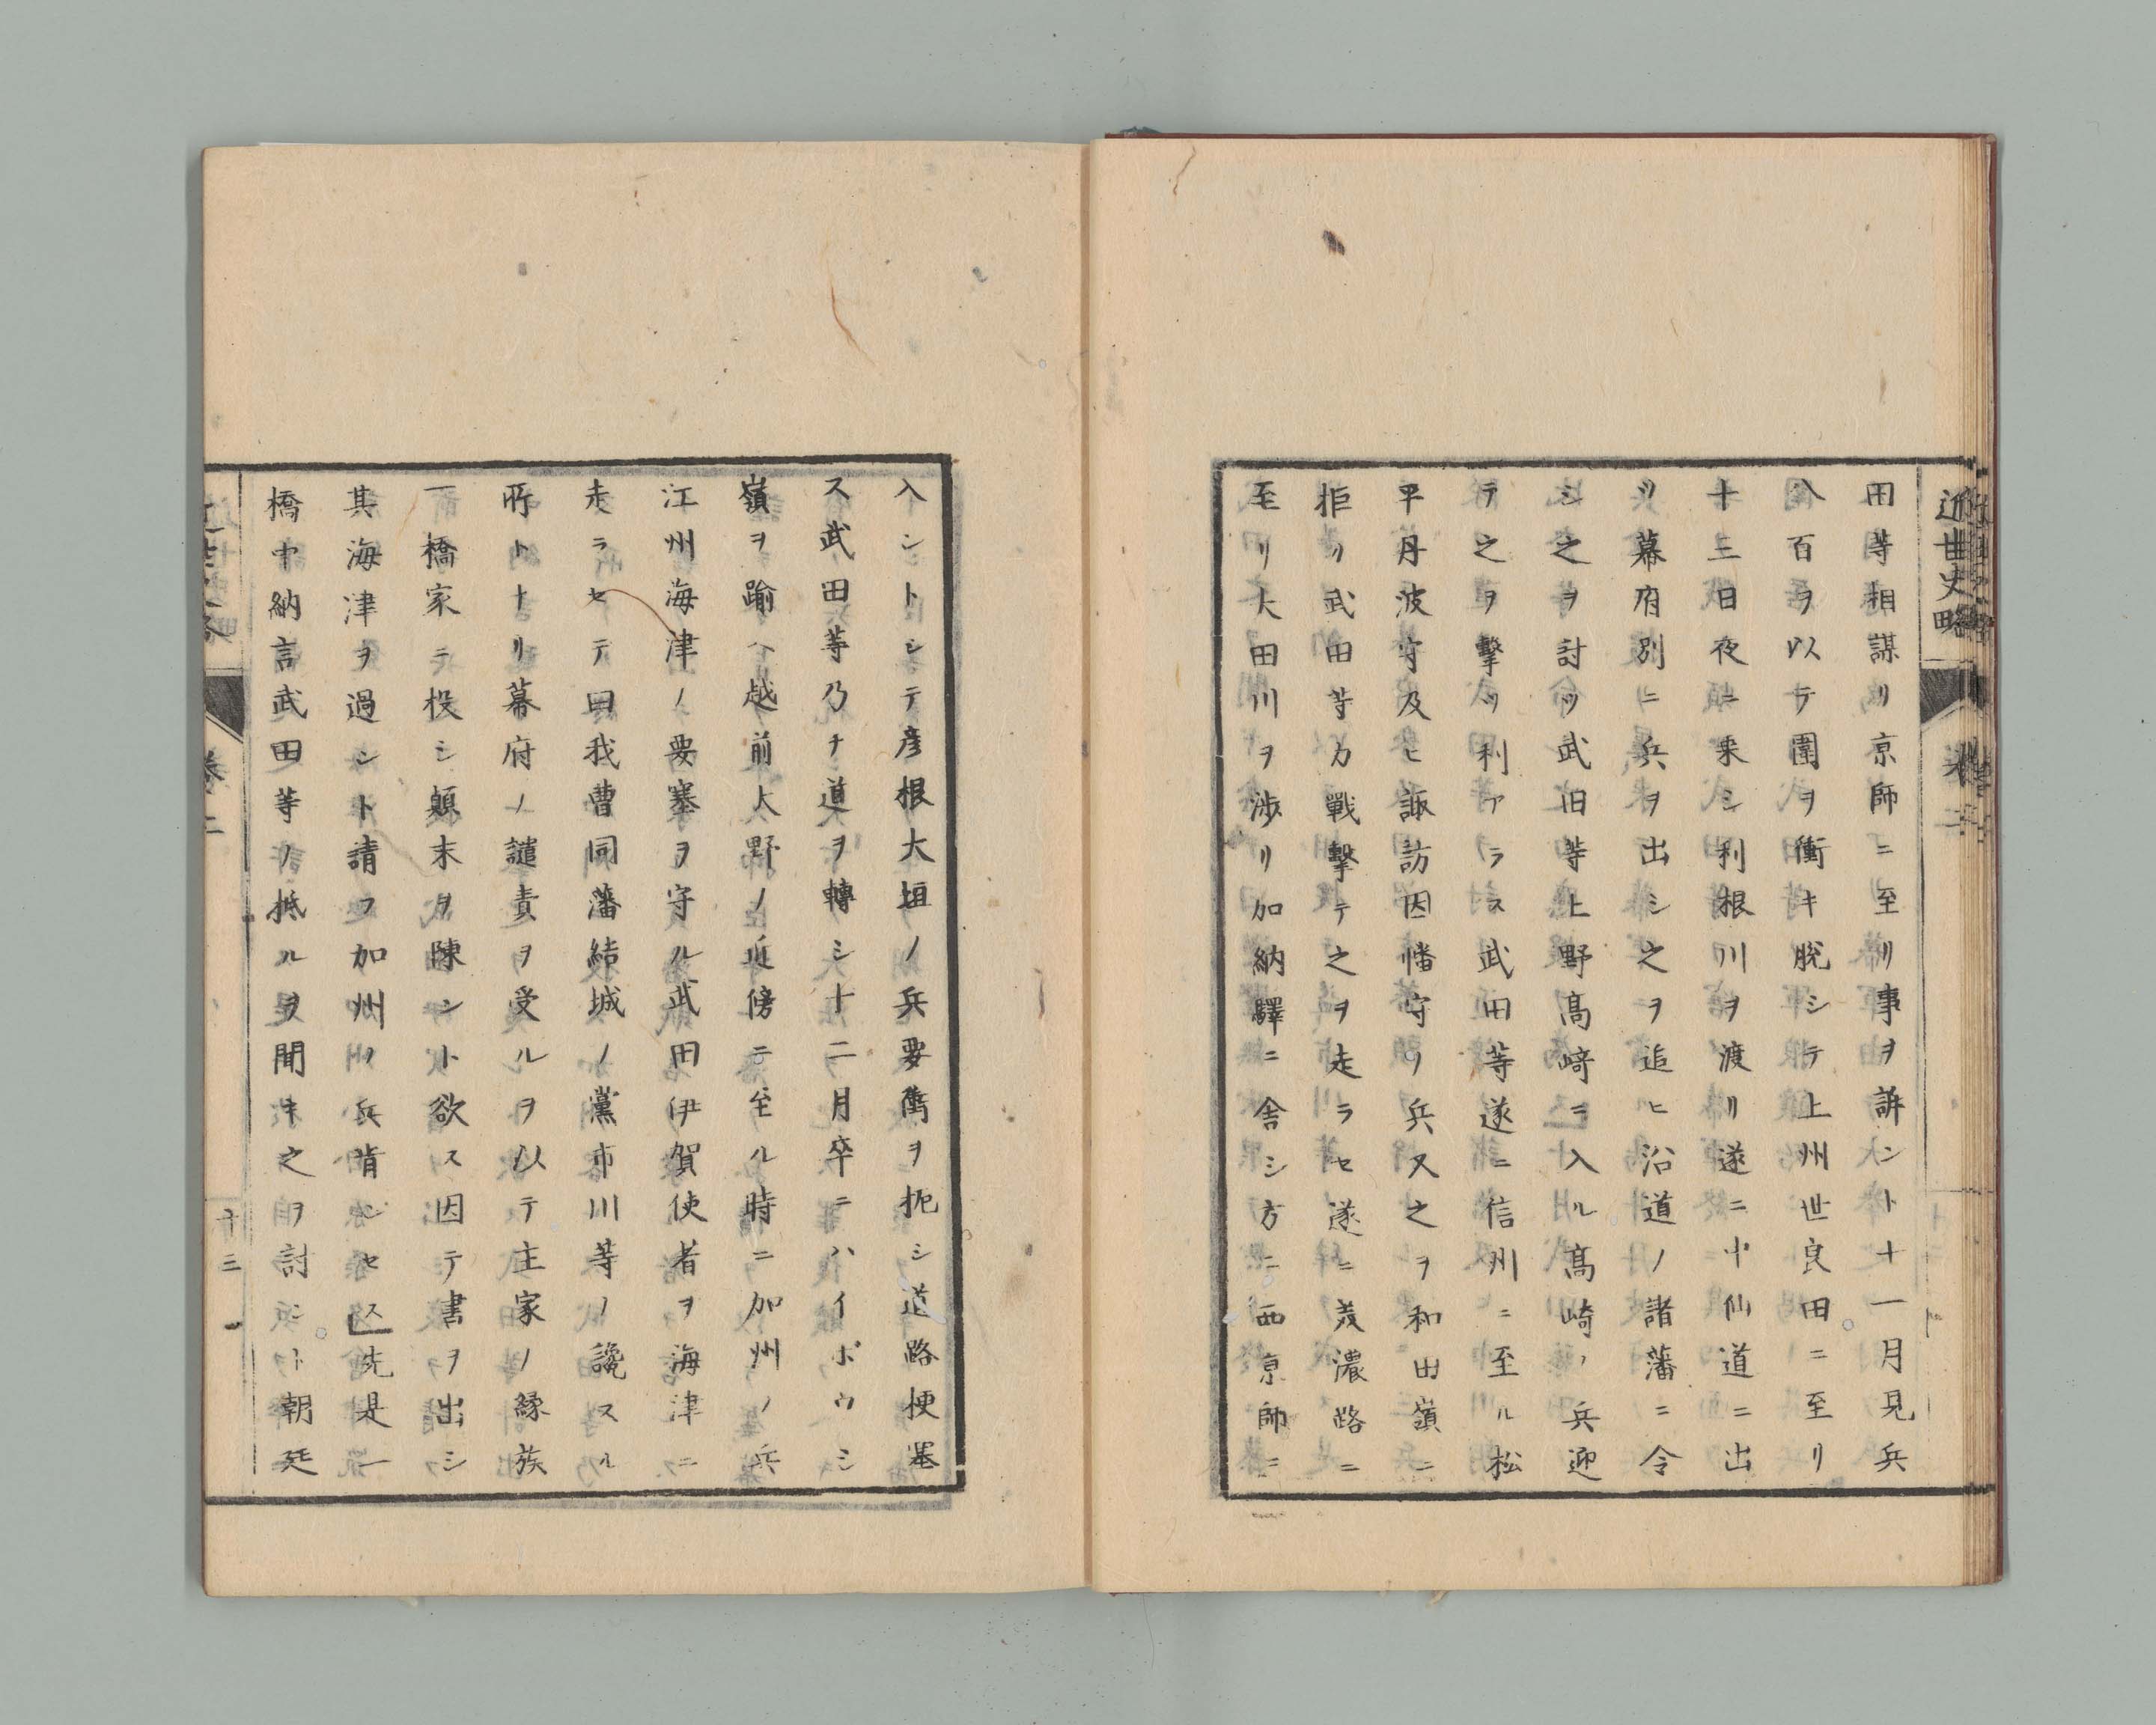 近世史畧
田等相謀リ京師ニ至リ事ヲ訴ント十一月見兵
八百ヲ以テ圍ヲ衝キ脱シテ上州世良田ニ至リ
十三日夜ニ乗シ利根川ヲ渡リ遂ニ中仙道ニ出
ツ幕府別ニ兵ヲ出シ之ヲ追ヒ沿道ノ諸藩ニ令
シ之ヲ討ツ武田等上野髙﨑ニ入ル髙崎ノ兵迎
テ之ヲ擊ツ利アラス武田等遂ニ信州ニ至ル松
平丹波守及ヒ諏訪因幡守ノ兵又之ヲ和田嶺ニ
拒ク武田等力戰擊テ之ヲ走ラセ遂ニ美濃路ニ
至リ大田川ヲ渉リ加納驛ニ舎シ方ニ西京師ニ
入ントシテ彦根大垣ノ兵要衝ヲ扼シ道路梗塞
ス武田等乃チ道ヲ轉シ十二月卒ニハイボウシ
嶺ヲ踰ヘ越前大野ノ近傍ニ至ル時ニ加州ノ兵
江州海津ノ要塞ヲ守ル武田伊賀使者ヲ海津ニ
走ラセテ曰我曹同藩結城ノ黨市川等ノ讒スル
所トナリ幕府ノ譴責ヲ受ルヲ以テ主家ノ縁族
一橋家ニ投シ顛末ヲ陳ント欲ス因テ書ヲ出シ
其海津ヲ過シト請フ加州ノ兵肯ンセス先是一
橋中納言武田等ノ抵ルヲ聞キ之ヲ討ント朝廷
卷二
十三